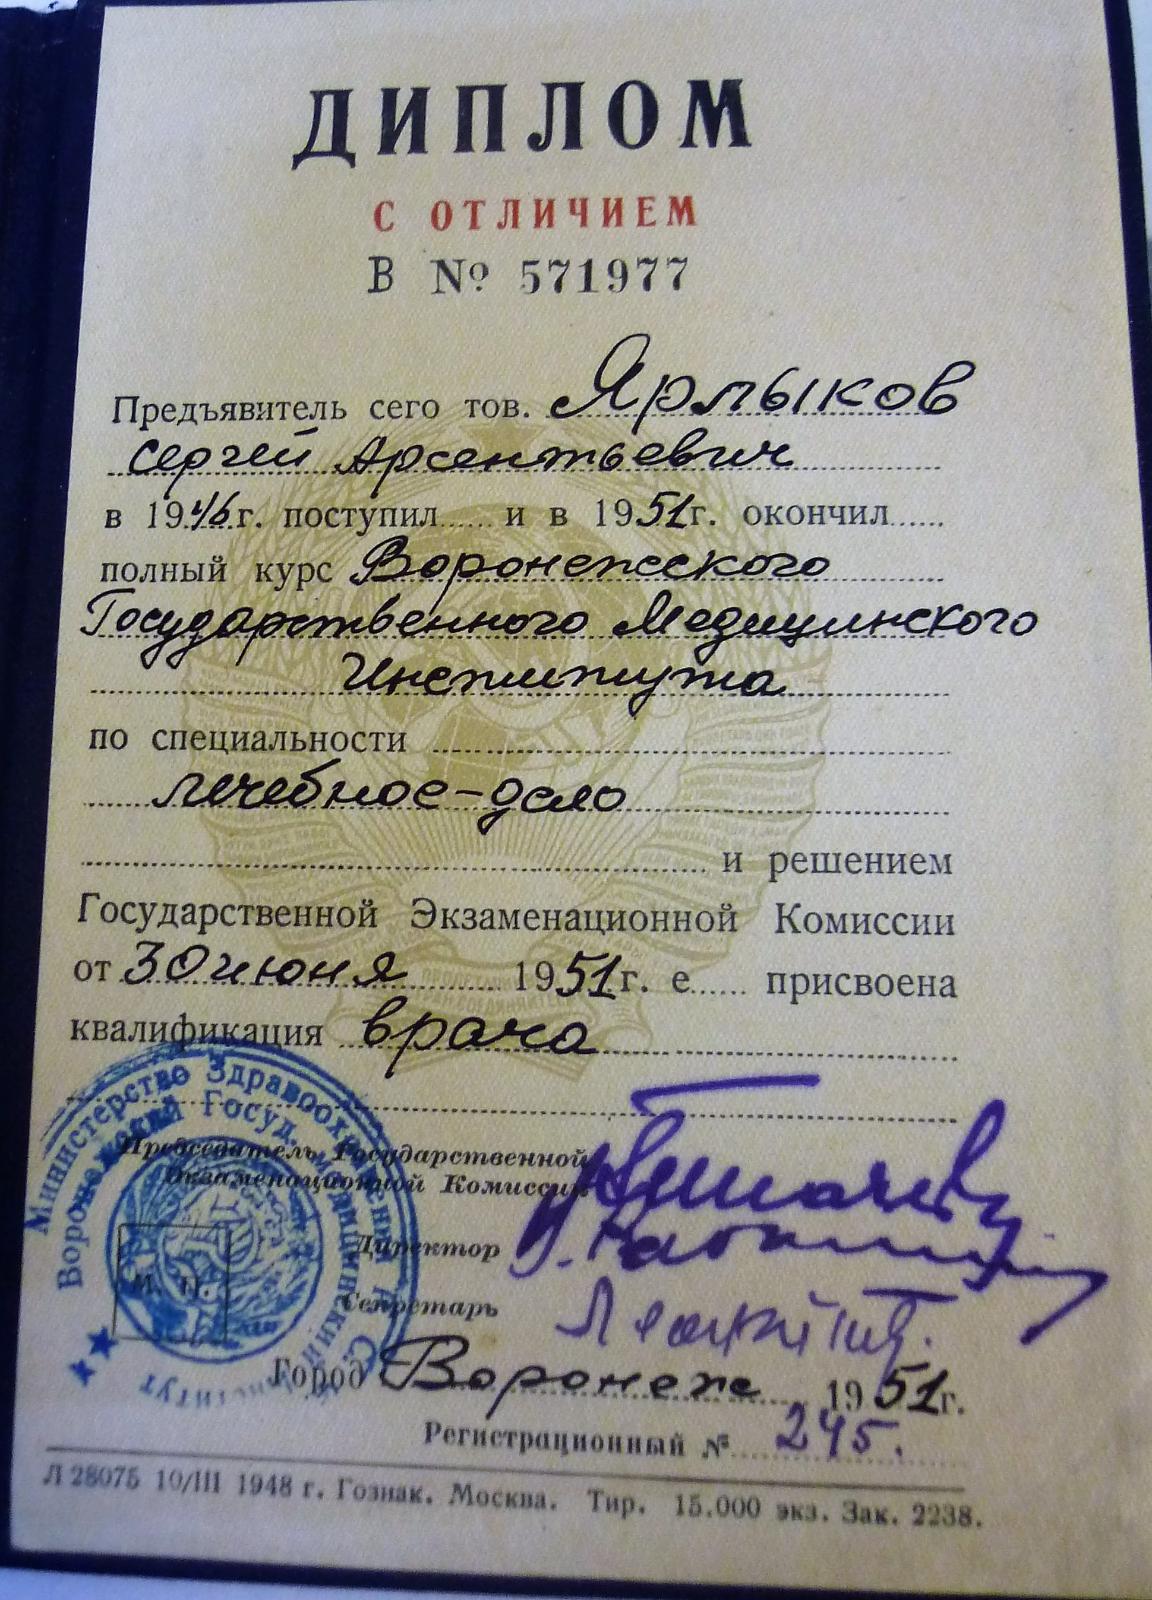 ДИПЛОМ
С ОТЛИЧИЕМ
В № 571977
Предъявитель сего тов. Ярлыков
Сергей Арсентьевич
в 1946 г. поступил и в 1951 г. окончил
полный курс Воронежского
Государственного Медицинского
Института
по специальности
лечебное-дело
и решением
Государственной Экзаменационной Комиссии
от 30 июня 1951 г. е присвоена
квалификация врача
Министерство Здравоохранения
Воронежский Госуд. Медицинский Институт
Председатель Государственной
Экзаменационной Комиссии
Директор
М. П.
Секретарь
Город Воронеж 1951 г.
Регистрационный № 245.
Л 28075 10/III 1948 г. Гознак. Москва. Тир. 15.000 экз. Зак. 2238.